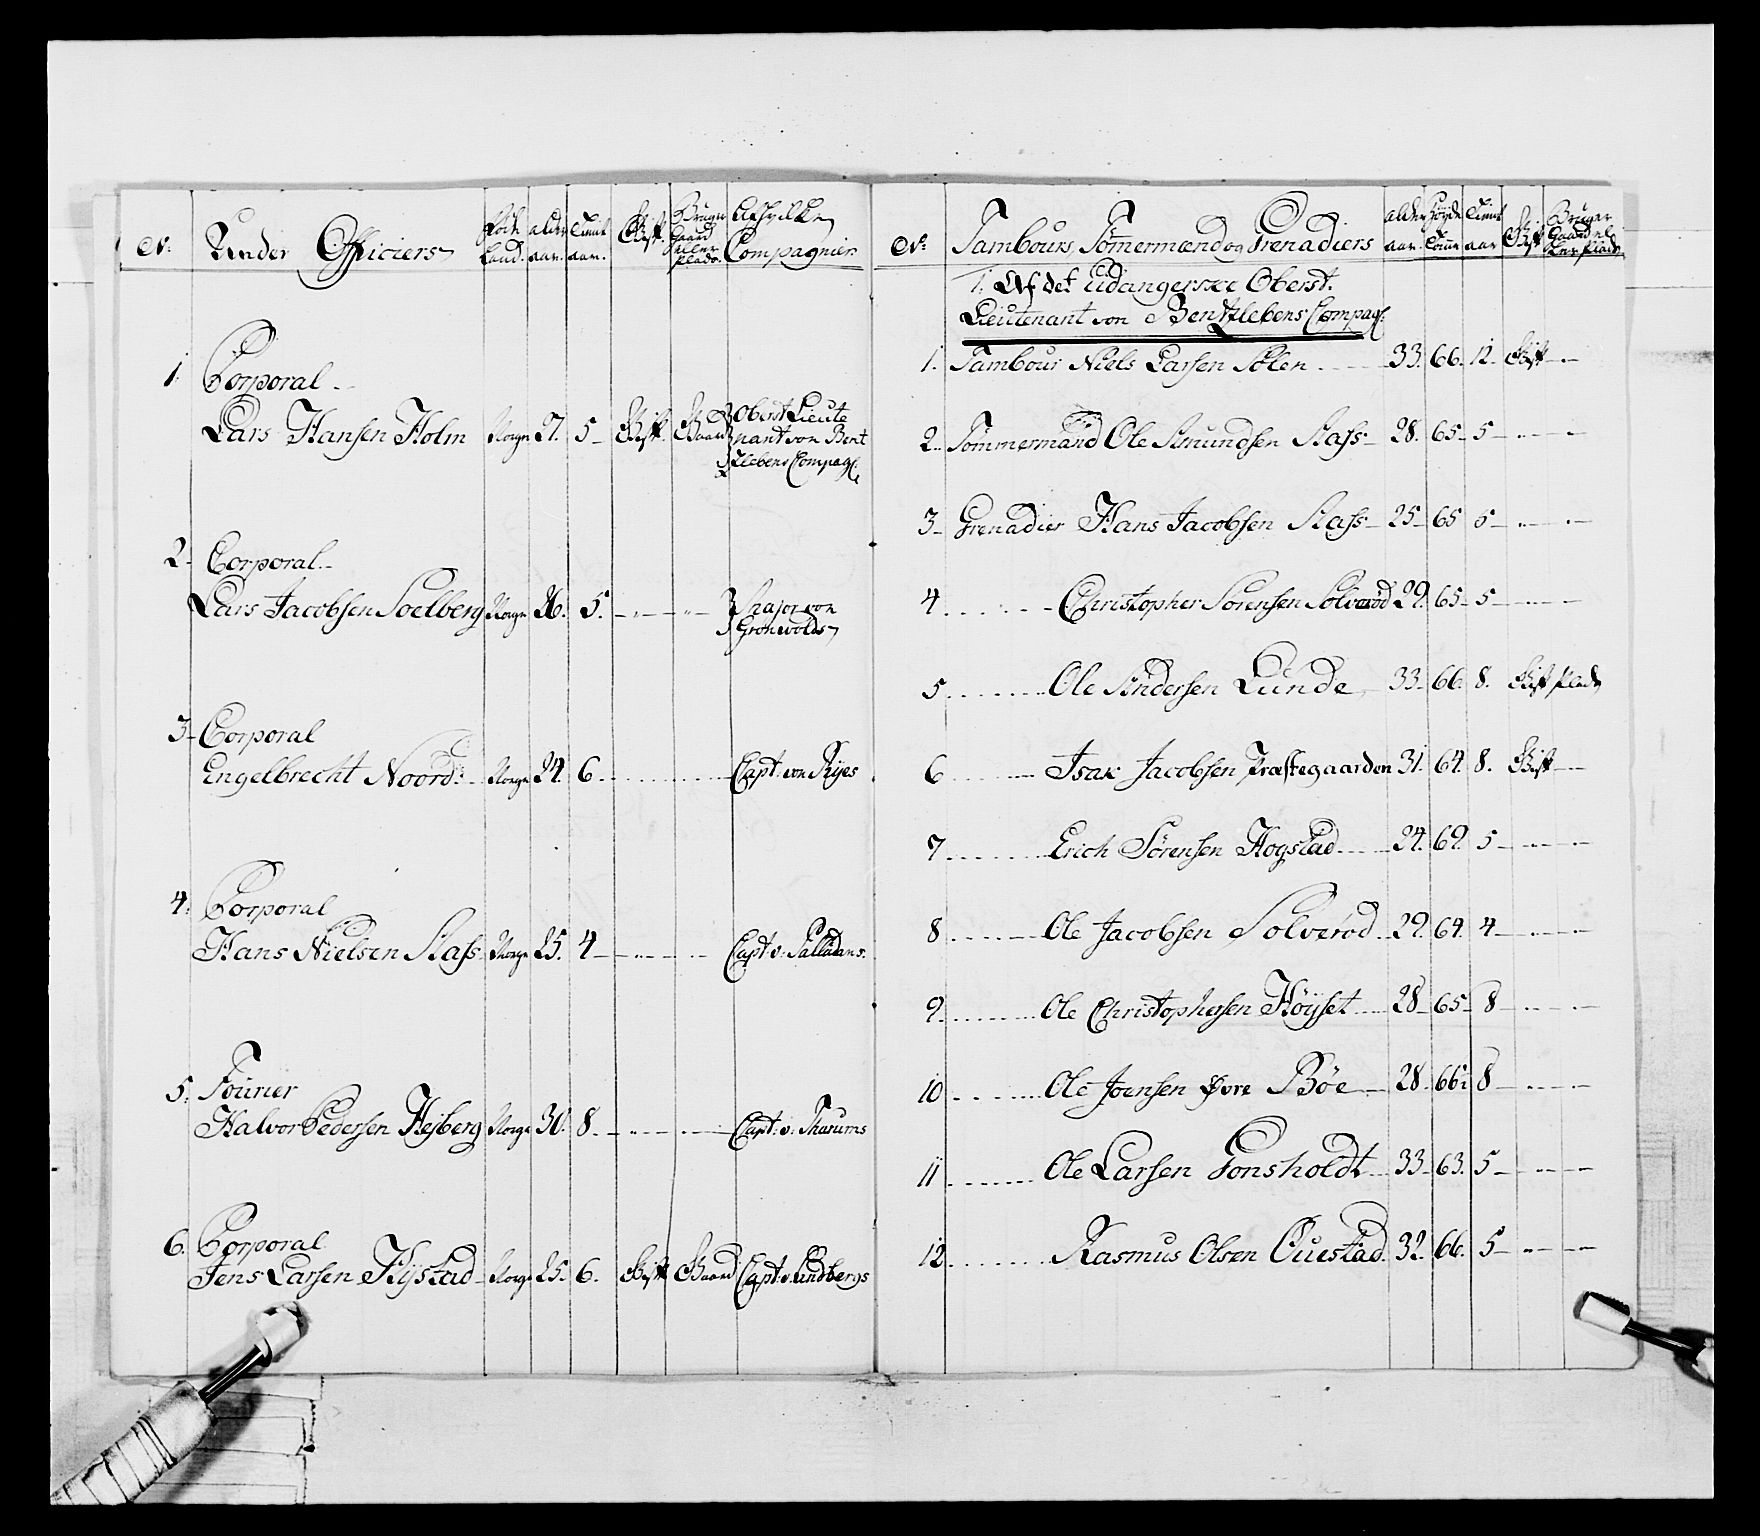 No: Under Officiers Föde Land. alder aar. Tient aar. Gift. Bruger Gaard eller Plads. Af hvilke Compagnier
1. Corporal
Lars Hansen Holm Norge 27. 5 Gift. Gaard Oberst Lieute
nant von Bent
zlebens Compag:
2. Corporal
Lars Jacobsen Soelberg Norge 26. 5. Major von
Grönwolds
3. Corporal
Engelbrecht Noord: Norge 24 6 Capt. von Rÿes
4. Corporal
Hans Nielsen Aass Norge 25. 4 Capt. v.
5. Fourier
Halvor Pedersen Norge 30. 8. Capt: v:
6. Corporal
Jens Larsen Norge 25. 6. Gift Gaard Capt. v. Lindbergs
No: Tambours, Tömermænd og Grenadiers alder aar. Höyde Tomr Tient aar Gift Bruger Gaard el ler Plads
1. Af det Eidangerske Oberst.
Lieutenant von Bentzlebens Compag:
1. Tambour Niels Larsen 33. 66. 12. Gift
2. Tömmermand Ole Amundsen Aass 28. 65 5
3 Grenadier Hans Jacobsen Aass 25 65 5
4 Christopher Sörensen Solveröd 29. 65 5
5 Ole Andersen Lunde 33 66. 8. Gift Plads
6 Isak Jacobsen Præstegaarden 31. 64. 8. Gift
7 Erich Sörensen Hogstad 24. 69. 5
8 Ole Jacobsen Solveröd 29. 64. 4
9. Ole Christophersen Höÿset 28 65 8
10 Ole Joensen Øvre Böe 28. 66 8
11 Ole Larsen Tonsholdt 33 63. 5
12 Rasmus Olsen Ouestad 32. 66. 5